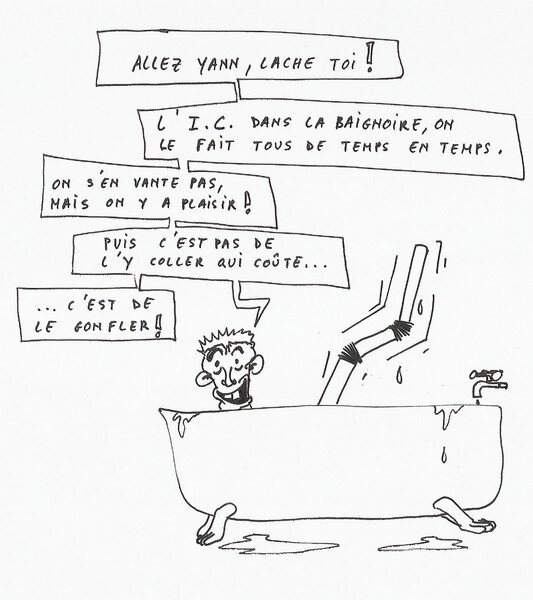 ALLEZ YANN, LACHE TOI !
L'I.C. DANS LA BAIGNOIRE, ON
LE FAIT TOUS DE TEMPS EN TEMPS.
ON S'EN VANTE PAS,
MAIS ON Y A PLAISIR !
PUIS C'EST PAS DE
L'Y COLLER QUI COÛTE...
... C'EST DE
LE GONFLER !